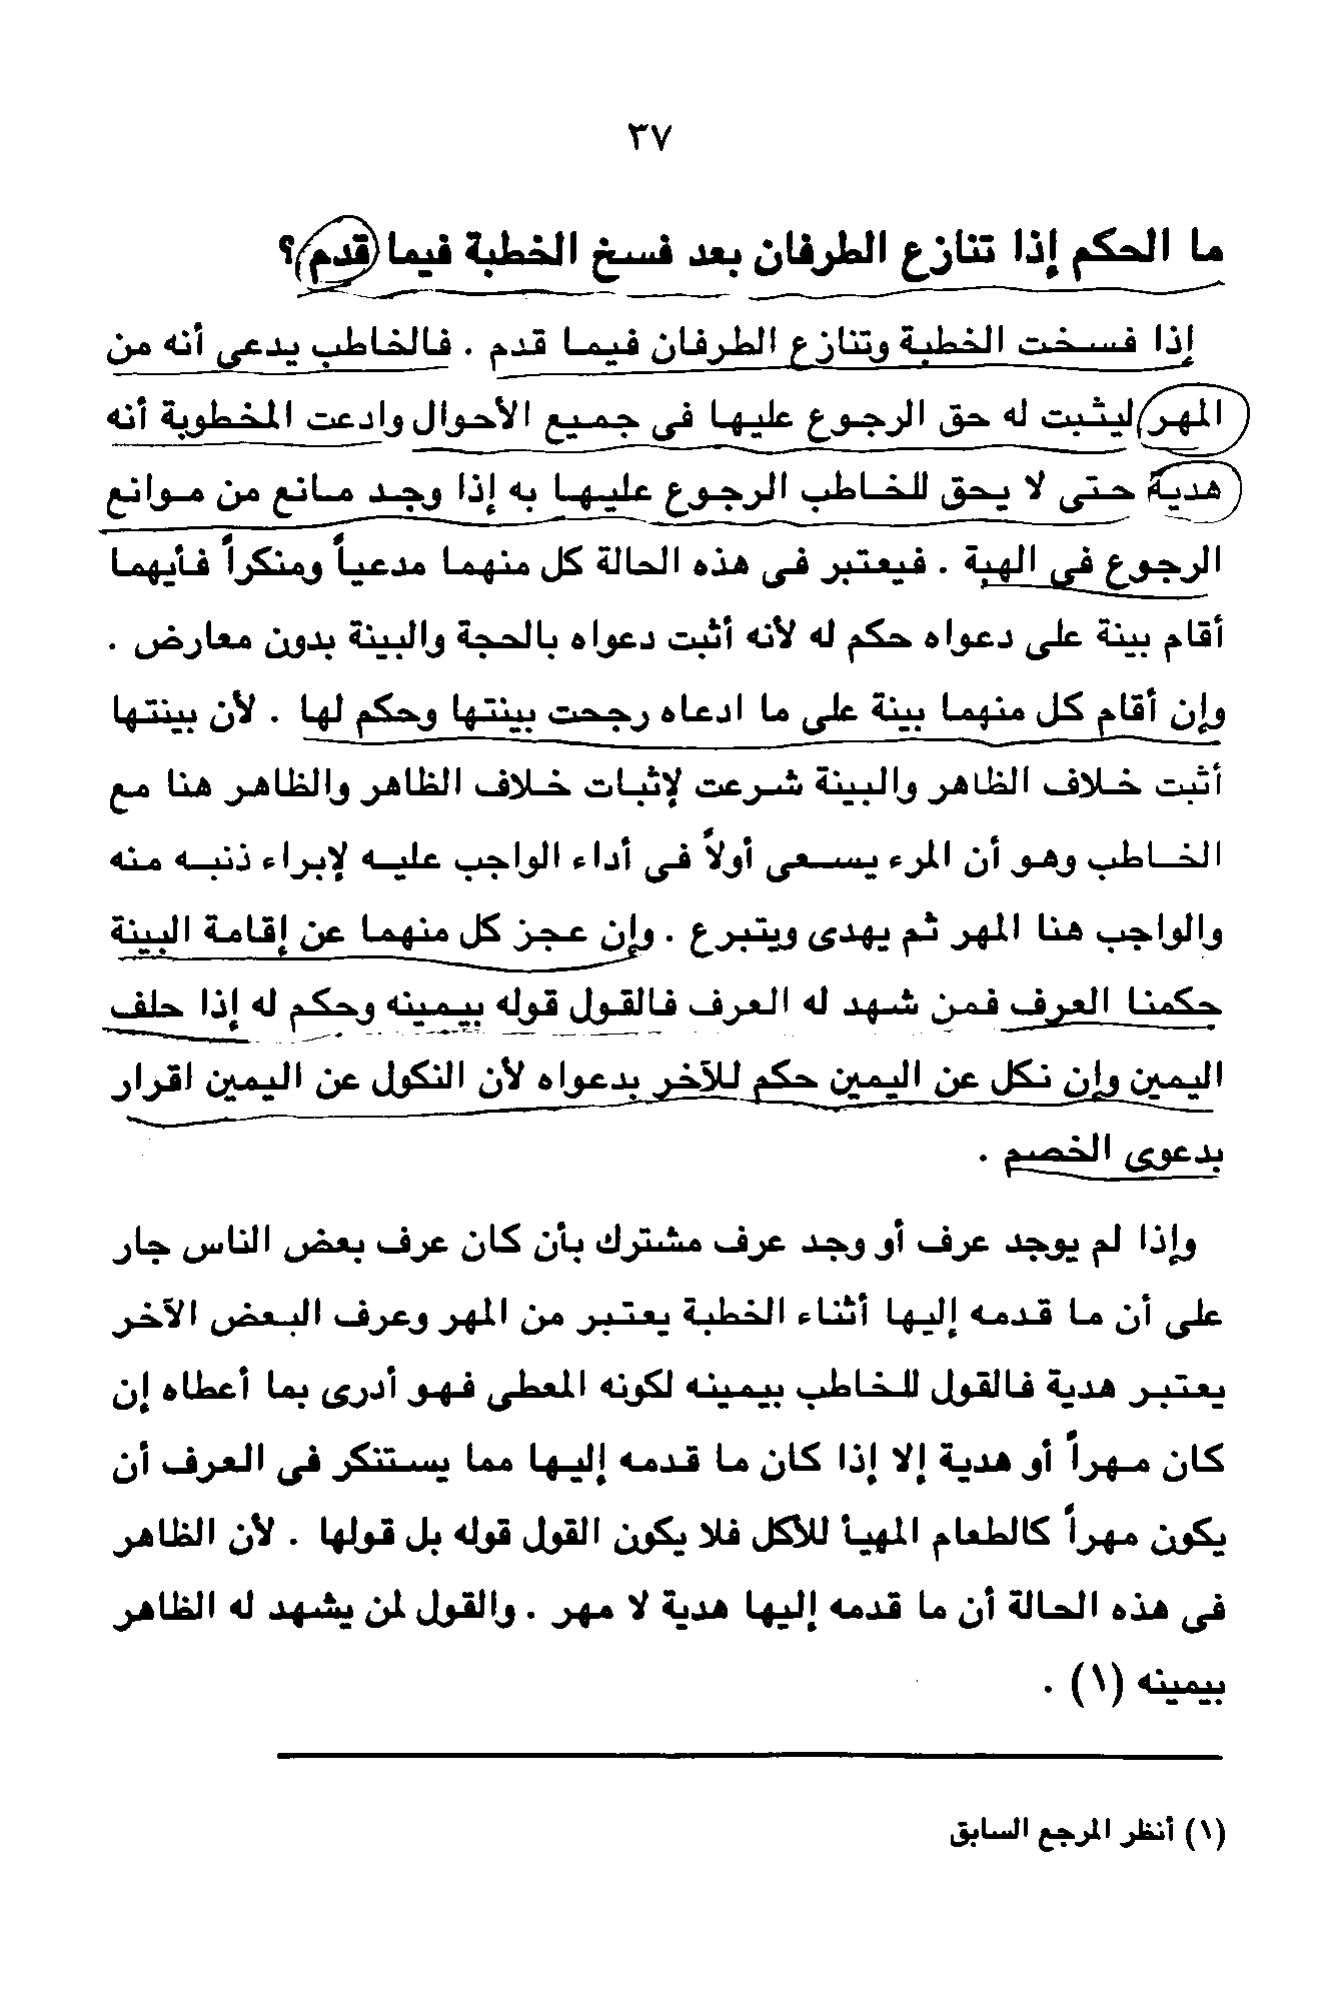 ٣٧
ما الحكم إذا تنازع الطرفان بعد فسخ الخطبة فيما قدم ؟
إذا فسخت الخطبة وتنازع الطرفان فيما قدم . فالخاطب يدعى أنه من
المهر ليثبت له حق الرجوع عليها فى جميع الأحوال وادعت المخطوبة أنه
هدية حتى لا يحق للخاطب الرجوع عليها به إذا وجد مانع من موانع
الرجوع فى الهبة . فيعتبر فى هذه الحالة كل منهما مدعياً ومنكراً فأيهما
أقام بينة على دعواه حكم له لأنه أثبت دعواه بالحجة والبينة بدون معارض .
وإن أقام كل منهما بينة على ما ادعاه رجحت بينتها وحكم لها . لأن بينتها
أثبت خلاف الظاهر والبينة شرعت لإثبات خلاف الظاهر والظاهر هنا مع
الخاطب وهو أن المرء يسعى أولاً فى أداء الواجب عليه لإبراء ذنبه منه
والواجب هنا المهر ثم يهدى ويتبرع . وإن عجز كل منهما عن إقامة البينة
حكمنا العرف فمن شهد له العرف فالقول قوله بيمينه وحكم له إذا حلف
اليمين وإن نكل عن اليمين حكم للآخر بدعواه لأن النكول عن اليمين اقرار
بدعوى الخصم .
وإذا لم يوجد عرف أو وجد عرف مشترك بأن كان عرف بعض الناس جار
على أن ما قدمه إليها أثناء الخطبة يعتبر من المهر وعرف البعض الآخر
يعتبر هدية فالقول للخاطب بيمينه لكونه المعطى فهو أدرى بما أعطاه إن
كان مهراً أو هدية إلا إذا كان ما قدمه إليها مما يستنكر فى العرف أن
يكون مهراً كالطعام المهيأ للأكل فلا يكون القول قوله بل قولها . لأن الظاهر
فى هذه الحالة أن ما قدمه إليها هدية لا مهر . والقول لمن يشهد له الظاهر
بيمينه (١) .
(١) أنظر المرجع السابق